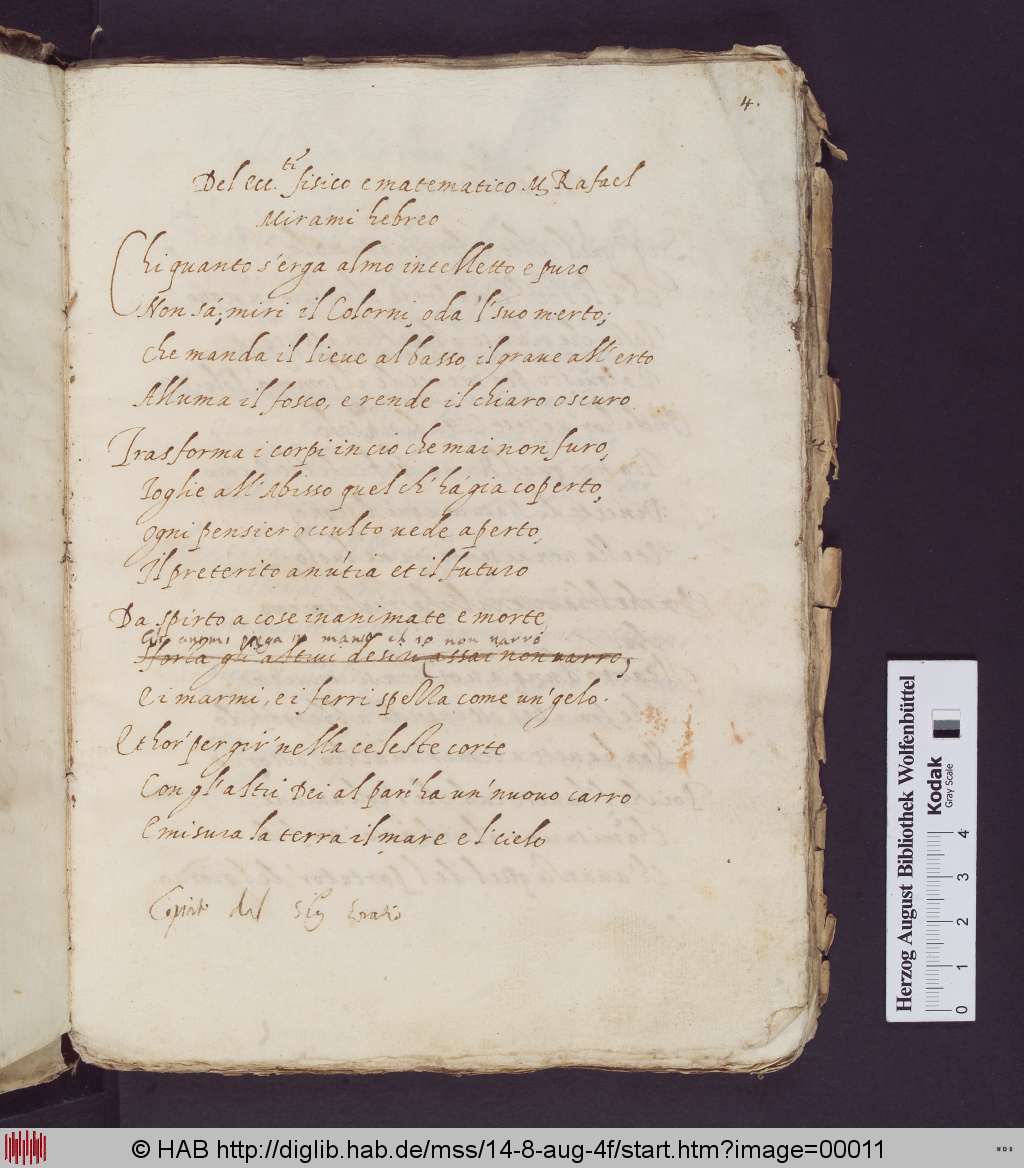 4.
Del ecc.ti fisico e matematico M. Rafael
Mirami hebreo
Chi quanto s'erga almo intelletto e puro
Non sá; miri il Colorni, oda 'l suo merto;
che manda il lieve al basso, il grave all' erto
Alluma il fosco, e rende il chiaro oscuro.
Trasforma i corpi in ciò che mai non furo,
Toglie all' Abisso quel ch' há gia coperto,
Ogni pensier occulto vede aperto,
Il preterito anútia et il futuro
Da spirto a cose inanimate e morte
Gli animi piega in manier ch' io non narro
Sforza gli altrui assai non narro,
E i marmi, e i ferri spella come un' gelo.
Et hor' per gir' nella celeste corte
Con gl' altri Dei al pari ha un' nuovo carro
E misura la terra il mare e 'l cielo
dal Sig
Herzog August Bibliothek Wolfenbüttel
Kodak
Gray Scale
0 1 2 3 4
© HAB http://diglib.hab.de/mss/14-8-aug-4f/start.htm?image=00011